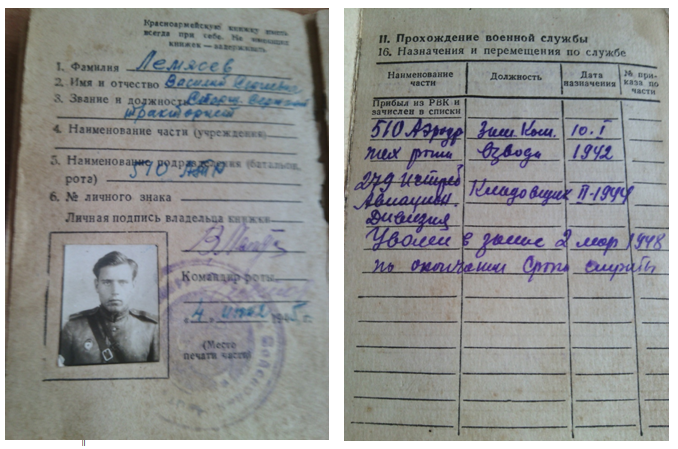 Красноармейскую книжку иметь
всегда при себе. Не имеющих
книжек — задерживать
1. Фамилия Лемясев
2. Имя и отчество Василий
3. Звание и должность сержант
тракторист
4. Наименование части (учреждения)
5. Наименование подразделения (батальон,
рота) 510
6. № личного знака
Личная подпись владельца книжки
Командир роты
4
(Место
печати части)
II. Прохождение военной службы
16. Назначения и перемещения по службе
Наименование части
Должность
Дата назначения
№ приказа по части
Прибыл из РВК и
зачислен в списки
510 Аэродр Зам. Ком. 10. I
тех роты взвода 1942
279 Истреб Кладовщик II-1944
Авиацион.
Дивизия
Уволен в запас 2 мар 1948
по окончании срока службы